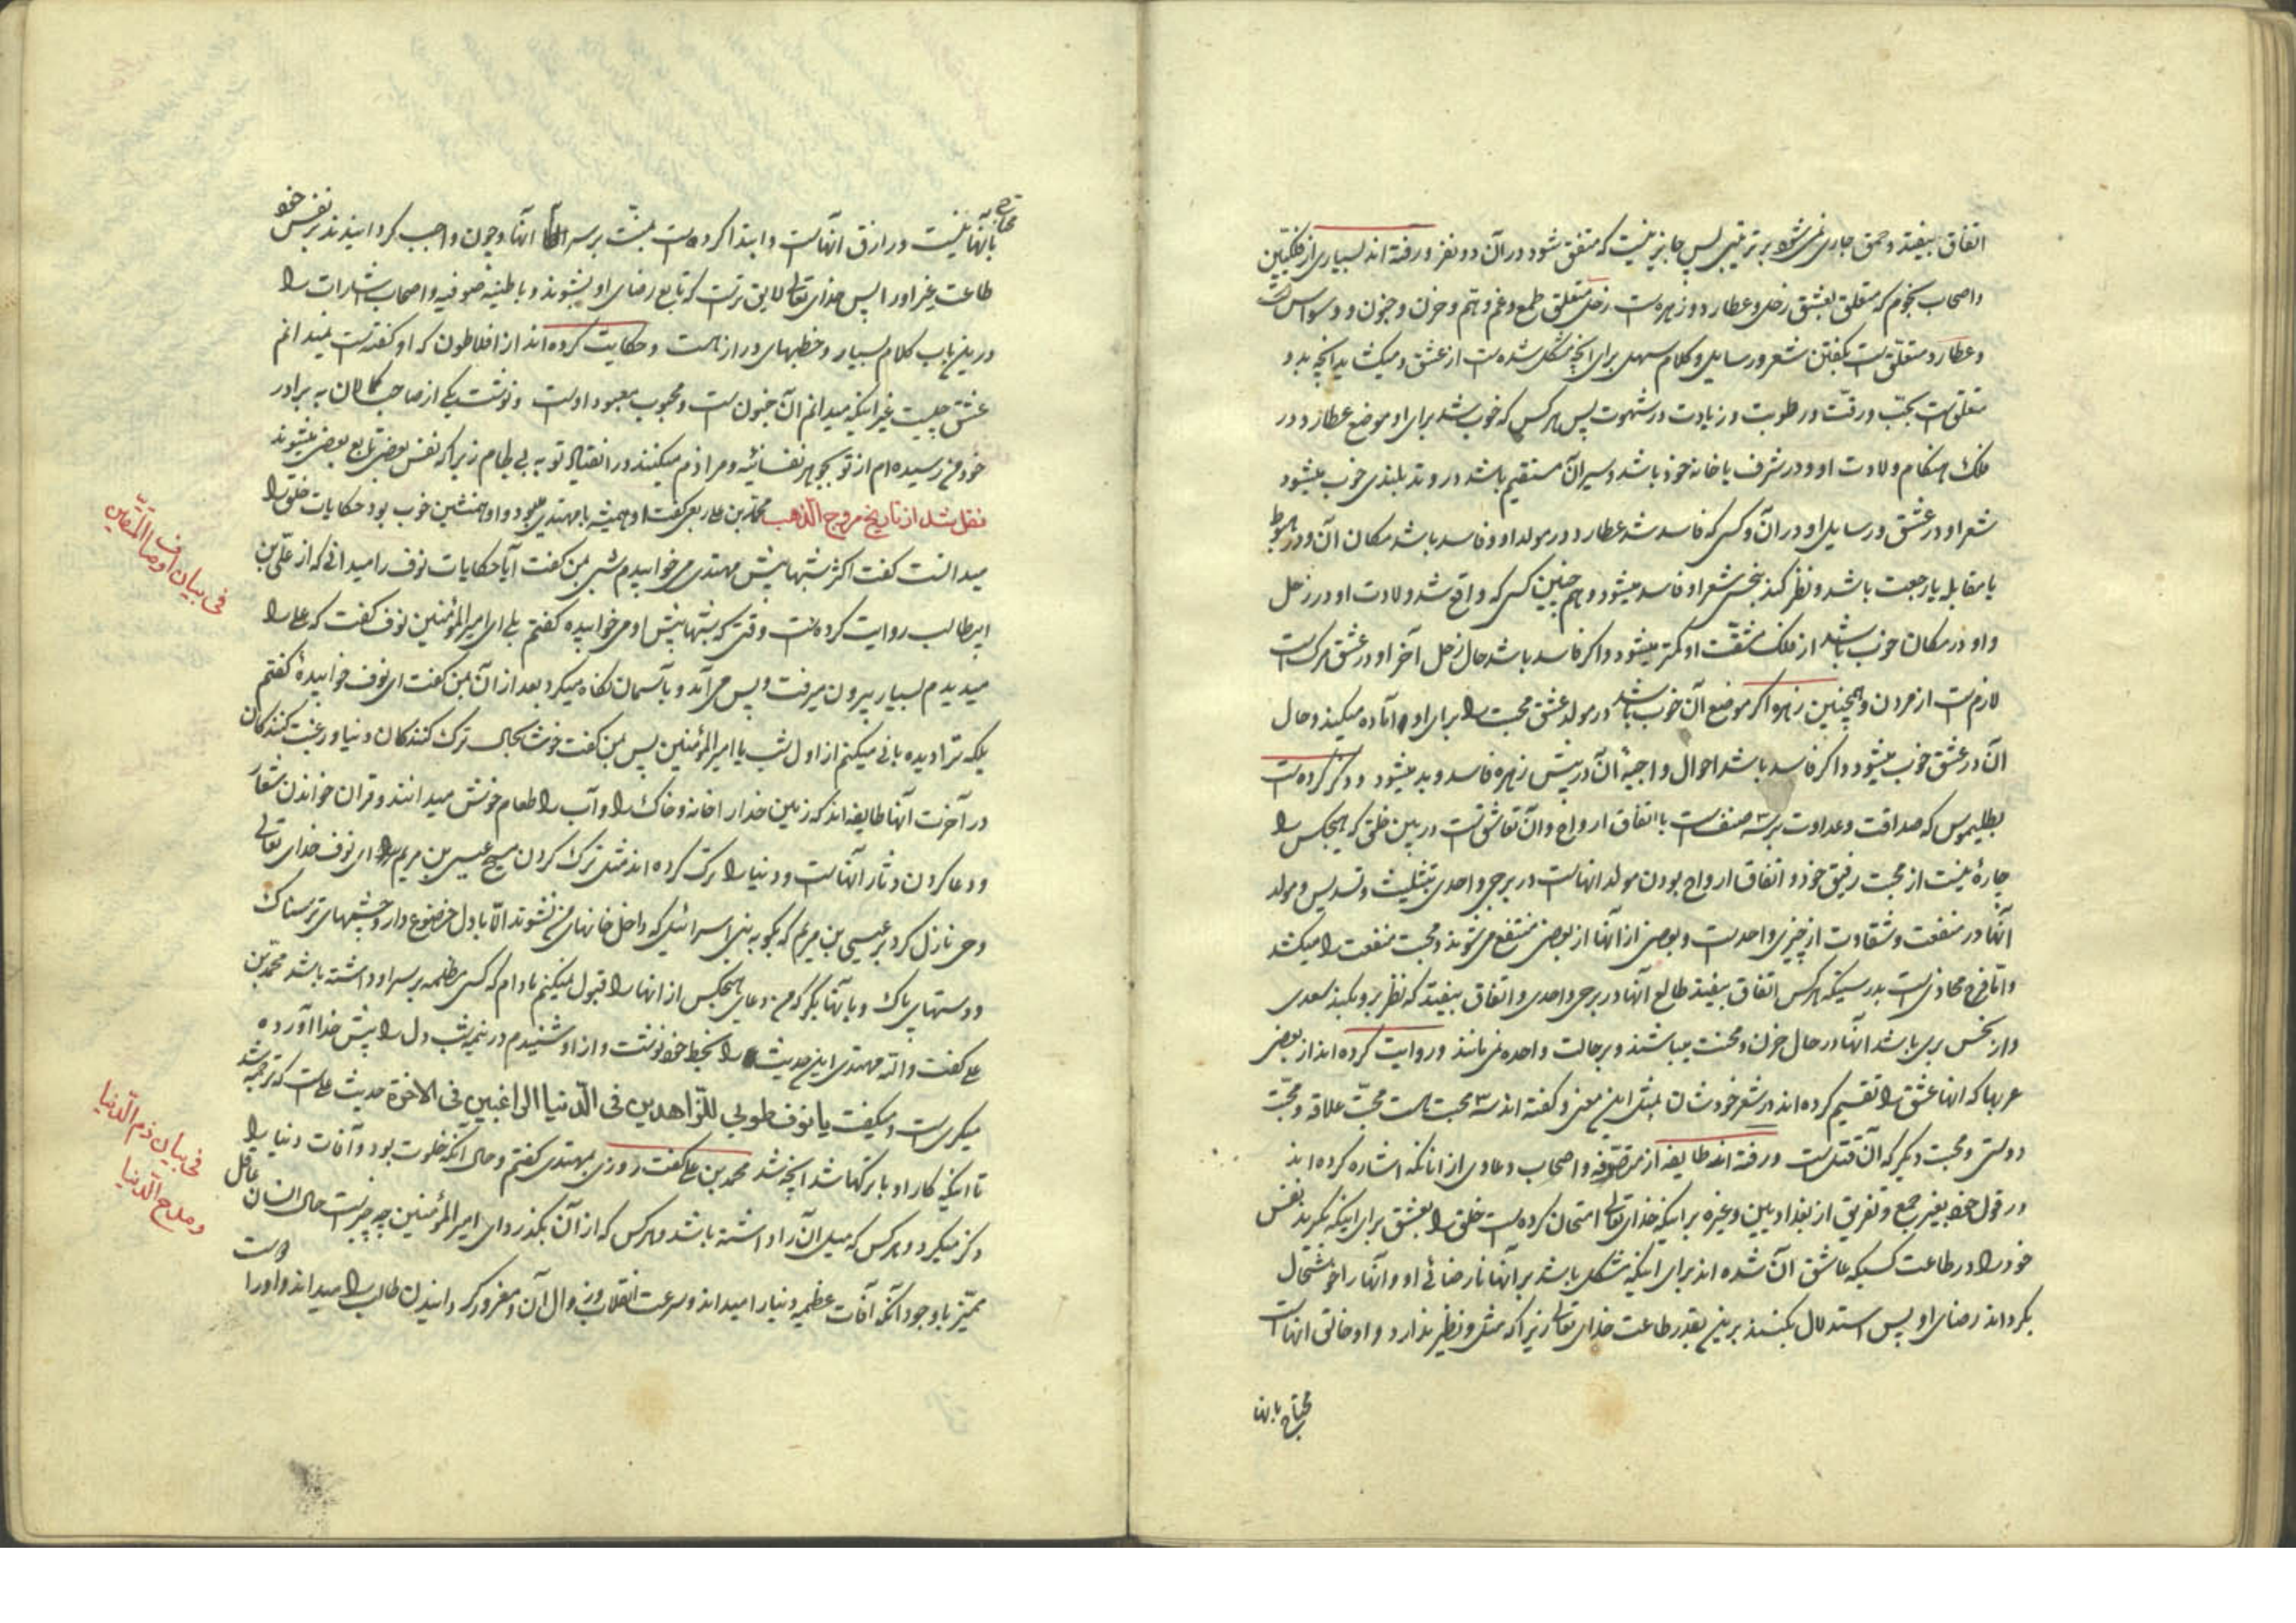 اتفاق بیفتد و حمق جاری نمی‌شود بر ترتیبی پس جایز نیست که متفق شود در آن دو نفر و رفته اند بسیاری از فلکیین
و اصحاب نجوم که متعلق بعشق زحل و عطارد و زهره است زحل متعلق طمع و غم و هم و حزن و جنون و وسواس است
و عطارد متعلق است بگفتن شعر و رسایل و کلام سهل برای آنچه مشکل شده است از عشق و میکشاید آنچه بد و
متعلق است بحب و رقت و رطوبت و زیادت در شهوت پس هر کس که خوب شد برای او موضع عطارد در
فلک هنکام ولادت او و در شرف یا خانه خود باشد و سیر آن مستقیم باشد در وتد بلندی خوب میشود
شعر او در عشق و رسایل او در آن و کسی که فاسد شد عطارد در مولد او و فاسد باشد مکان آن و در هبوط
یا مقابله یا رجعت باشد و نظر کند بنحس شعر او فاسد میشود و هم چنین کسی که واقع شد ولادت او در زحل
و او در مکان خوب باشد از فلک مشقت او کمتر میشود و اکر فاسد باشد حال زحل آخر او در عشق مرک است
لازم است از مردن و همچنین زهره اکر موضع آن خوب باشد در مولد عشق محبت را برای او آماده میکند و حال
آن در عشق خوب میشود و اکر فاسد باشد احوال واجبه آن در پیش زهره فاسد و بد میشود و ذکر کرده است
بطلیموس که صداقت و عداوت بر سه صنف است یا اتفاق ارواح و آن تعاشق است در بین خلق که هیچکس را
چارهٔ نیست از محبت رفیق خود و اتفاق ارواح بودن مولد انهاست در برج واحدی بتثلیث و تسدیس و مولد
آنها در منفعت و شقاوت از چیزی واحد است و بعضی از آنها از بعضی منتفع می‌شوند و محبت منفعت را میکشد
و اتا فرح محاذی است بدرستیکه هر کس اتفاق بیفتد طالع آنها در برج واحدی و اتفاق بیفتد که نظر برو بکند سعدی
و از نحس بری باشد آنها در حال حزن و محنت میباشند و بر حالت واحده نمی‌مانند و روایت کرده اند از بعضی
عربها که انها عشق را تقسیم کرده اند در شعر خودشان بمثل این معنی و کفته اند سه محبت است محبّ علاقه و محبّت
دوستی و محبت دیکر که آن قتل است و رفته اند طایفه از متصوفه و اصحاب دعاوی از انانکه اشاره کرده اند
در قول خود بغیر جمع و تفریق از بغدادیین و غیره بر اینکه خدای تعالی امتحان کرده است خلق را بعشق برای اینکه بکیرند نفس
خود را در طاعت کسیکه عاشق آن شده اند برای اینکه مشکل باشد بر آنها نارضائی او و آنها را خوشحال
بکرداند رضای او پس استدلال بکنند برین بقدر طاعت خدای تعالی زیرا که مثل و نظیر ندارد و او خالق انهاست
محتاج بانها
محتاج
بآنها نیست و رازق انهاست و ابتدا کرده است بمنّت بر سر آنها و چون واجب کردانیدند بر نفس خود
طاعت غیر او را پس خدای تعالی لایق ترست که تابع رضای او بشوند و باطنیه صوفیه و اصحاب اشارات را
درین باب کلام بسیار و خطبهای دراز هست و حکایت کرده اند از افلاطون که او کفته است نمیدانم
عشق چیست غیر اینکه میدانم آن جنون است و محبوب معبود اوست و نوشت یکی از صاحب کمالان به برادر
خود من رسیده ام از تو بجوهر نفسانیه و مرا ذم میکنند در انقیاد تو به بی لجام زیرا که نفس بعضی تابع بعضی میشوند
نقل شد از تاریخ مروج الذهب محمد بن علی ربعی کفت او همیشه با مهتدی میبود و او همنشین خوب بود حکایات خلق را
میدانست کفت اکثر شبها پیش مهتدی می‌خوابیدم شبی بمن کفت آیا حکایات نوف را میدانی که از علّی بن
ابیطالب روایت کرده است وقتی که شبها پیش او می‌خوابیده کفتم بلی ای امیر المؤمنین نوف کفت که علی را
میدیدم بسیار بیرون میرفت و پس می‌آمد و بآسمان نکاه میکرد بعد از آن بمن کفت ای نوف خوابیدهٔ کفتم
بلکه ترا دیده بانی میکنم از اول شب یا امیر المؤمنین پس بمن کفت خوشا بحال ترک کنندکان دنیا و رغبت کنندکان
در آخرت آنها طایفه اند که زمین خدا را خانه و خاک را و آب را طعام خوش میدانند و قران خواندن شعار
و دعا کردن دثار آنهاست و دنیا را ترک کرده اند مثل ترک کردن مسیح عیسی بن مریم را ای نوف خدای تعالی
وحی نازل کرد بر عیسی بن مریم که بکو به بنی اسرائیل که داخل خانهای من نشوند الّا با دل خضوع دار و چشمهای ترسناک
و دستهای پاک و بآنها بکو که من دعای هیچکس از انها را قبول نمیکنم مادام که کسی مظلمه بر سر او داشته باشد محمد بن
علی کفت والله مهتدی این حدیث را بخط خود نوشت و از او شنیدم در نیم شب دل را پیش خدا آورده
میکریست و میکفت یا نوف طوبی للزّاهدین فی الدّنیا الراغبین فی الاخرة حدیث علیست که ترجمه شد
تا اینکه کار او با ترکها شد آنچه شد محمد بن علی کفت روزی بمهتدی کفتم و حال آنکه خلوت بود و آفات دنیا را
ذکر میکرد و هر کس که میل آن را داشته باشد و هر کس که از آن بکذرد ای امیر المؤمنین چه چیزست حال انسان عاقل
ممیّز با وجود آنکه آفات عظیمه دنیا را میداند و سرعت انقلاب و زوال آن و مغرور کردانیدن طالب را میداند و او را دوست
فی بیان اوصاف المتّقین
فی بیان ذم الدّنیا
و مدح الدّنیا